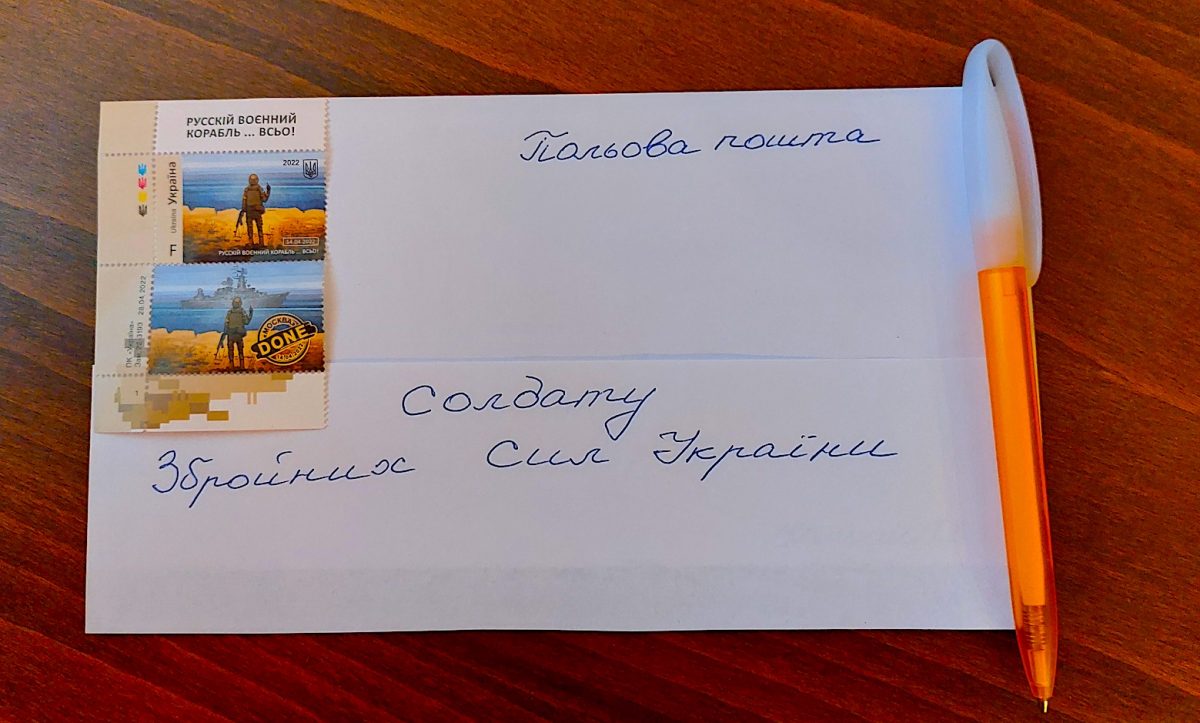 РУССКІЙ ВОЄННИЙ
КОРАБЛЬ ... ВСЬО!
Польова пошта
2022
Ukraina Україна
F
14.04.2022
РУССКІЙ ВОЄННИЙ КОРАБЛЬ ... ВСЬО!
28.04.2022
DONE
1
Солдату
Збройних Сил України